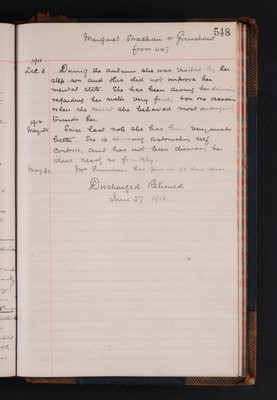 548
Margaret Strachan or Grimshaw
from 447.
1911
Dec. 2 During the autumn she was visited by her
step-son and this did not improve her
mental state. She has been airing her delusions
regarding her sister very freely, for no reason
when she she behaved most
towards her.
1912
May 25. Since last note she has been very much
better. She is showing astonishing self
control, and has not been discussing her
ideas nearly so frankly.
May 30. Mrs has on 28 days
Discharged Relieved
June 27. 1912.